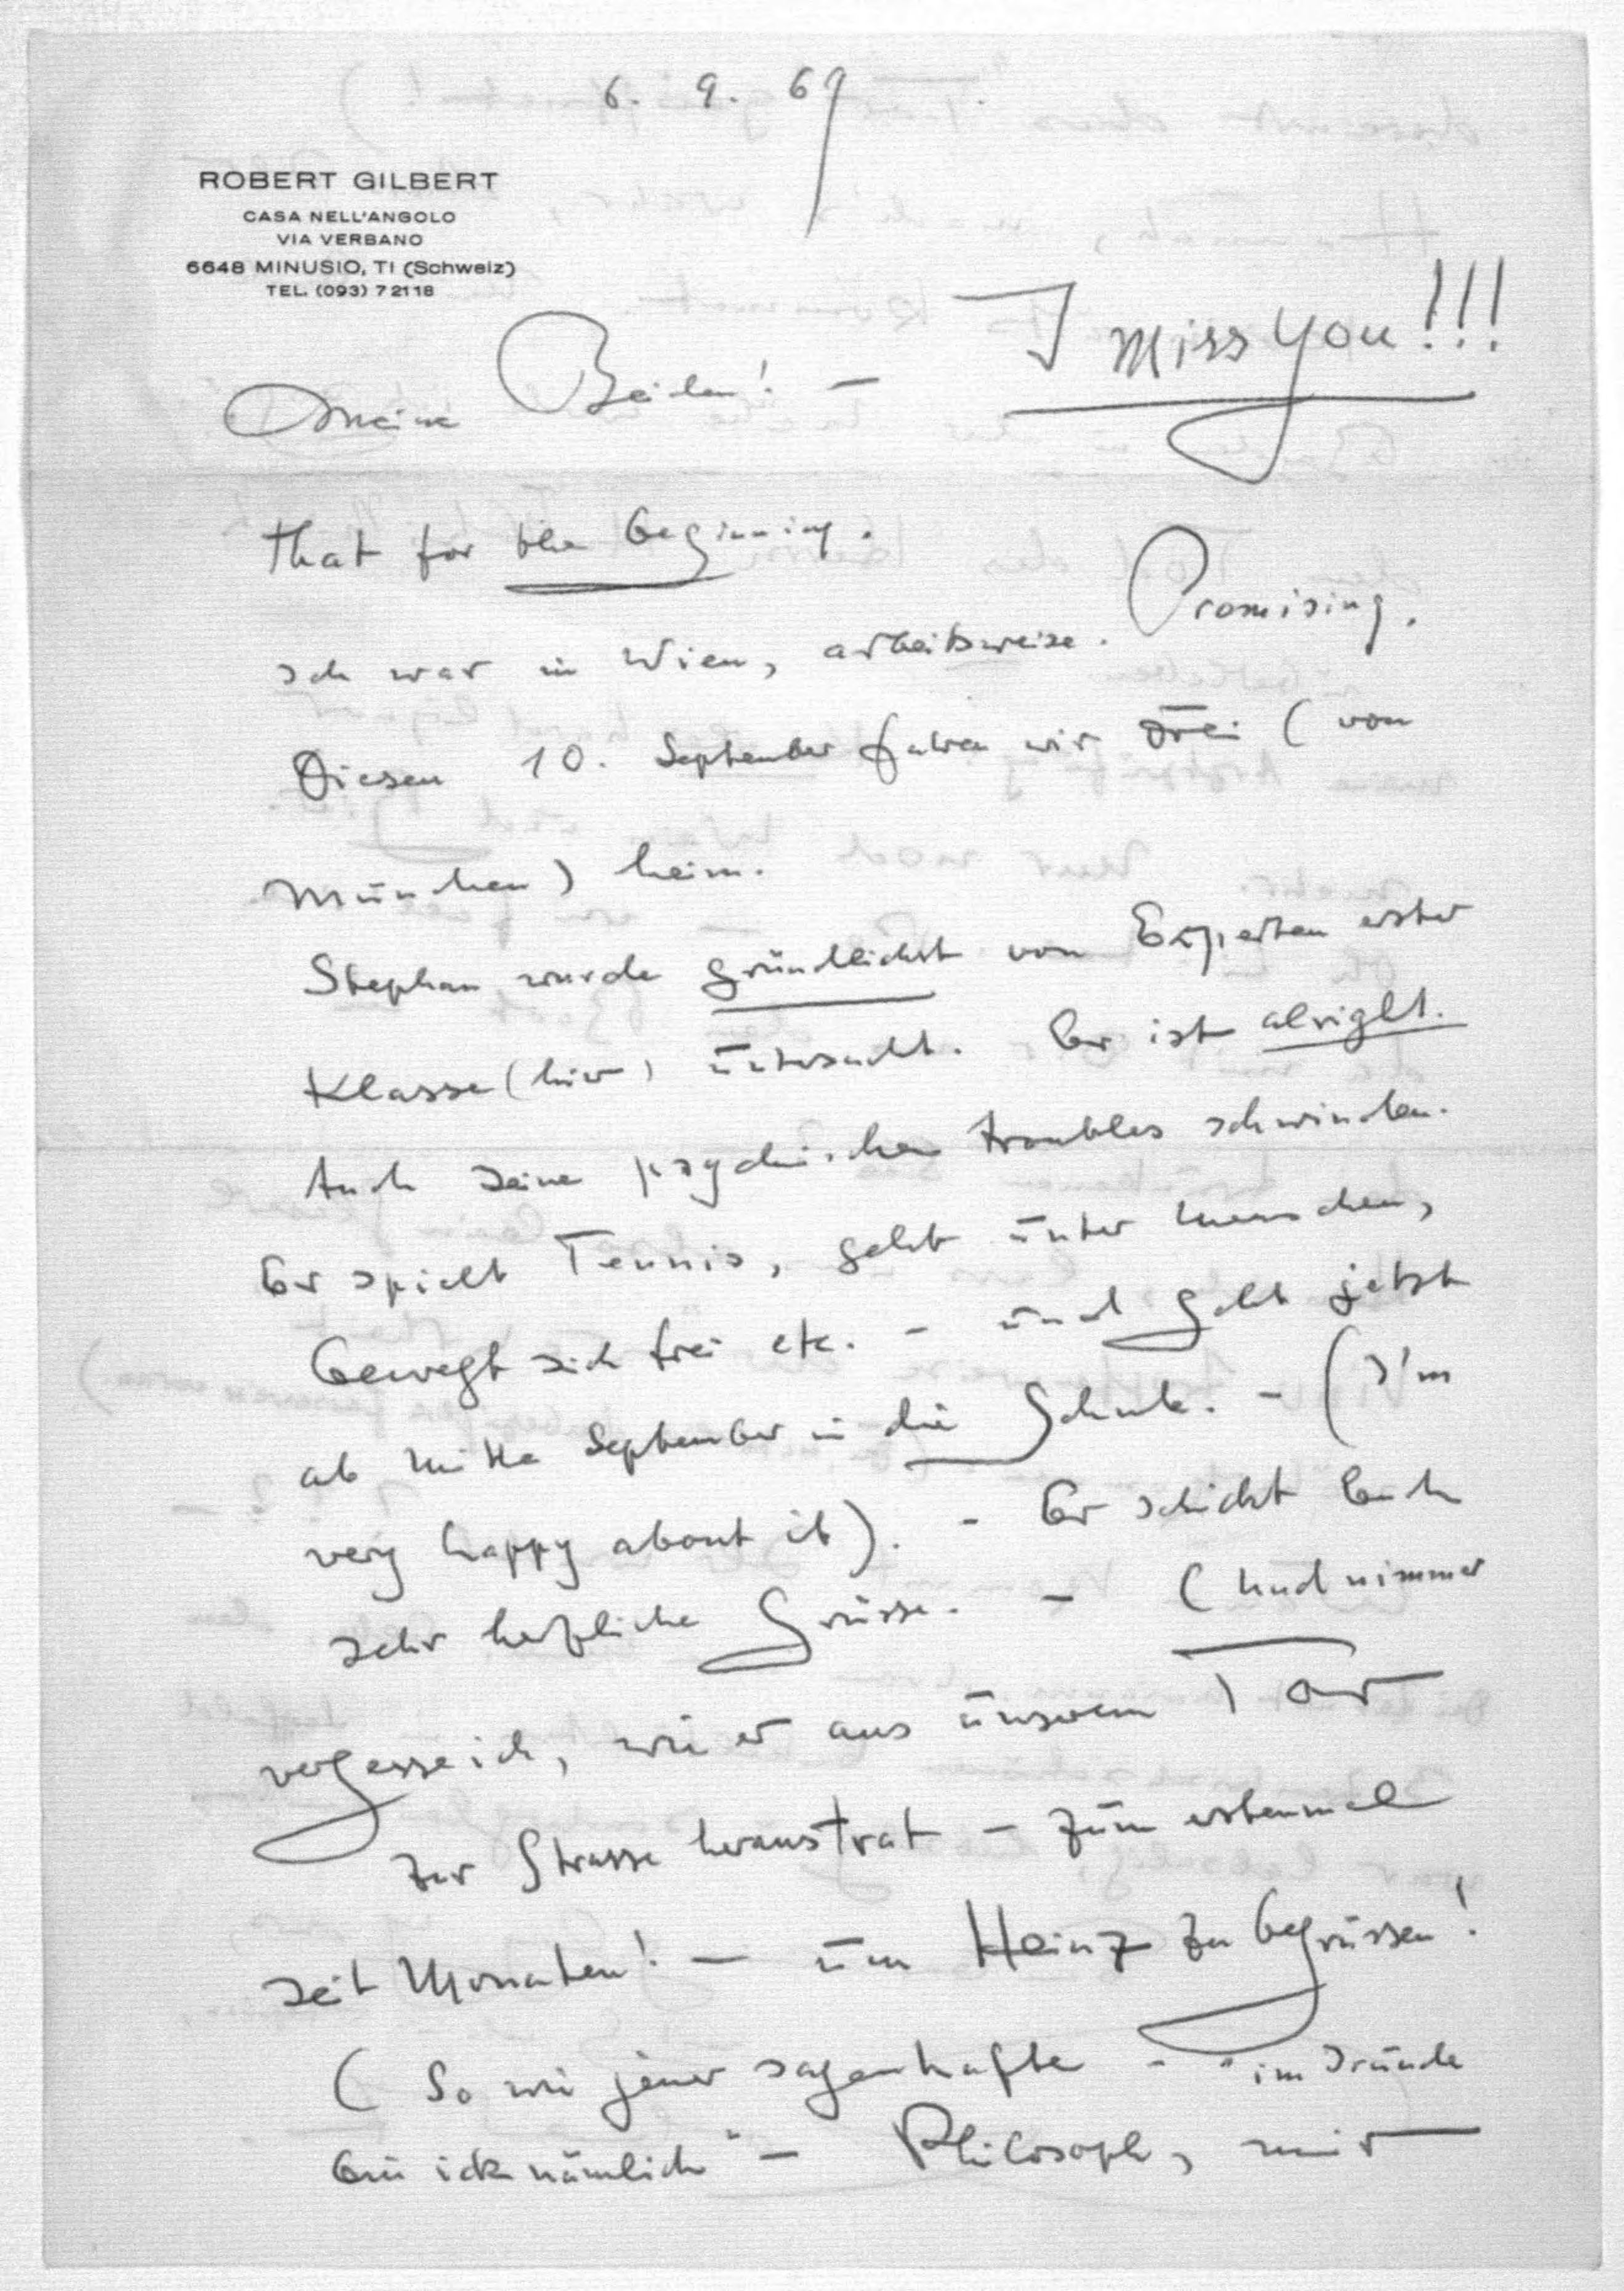 6. 9. 69
ROBERT GILBERT
CASA NELL'ANGOLO
VIA VERBANO
6648 MINUSIO, TI (Schweiz)
TEL. (093) 7 21 18
I miss you!!!
Meine Beiden! —
That for the beginning.
Ich war in Wien, arbeitsweise. Promising.
Diesen 10. September fahren wir drei (von
München) heim.
Stephan wurde gründlichst von Experten erster
Klasse (hier) untersucht. Er ist alright.
Auch seine psychischen troubles schwinden.
Er spielt Tennis, geht unter Menschen,
bewegt sich frei etc. - und geht jetzt
ab Mitte September in die Schule. - (I'm
very happy about it). - Er schickt Euch
sehr herzliche Grüsse. - (Und nimmer
vergesse ich, wie er aus unserem Tor
zur Strasse heraustrat - zum erstenmal
seit Monaten! — um Heinz zu begrüssen!
(So wie jener sagenhafte - "im Jrunde
bin ick nämlich" - Philosoph, mir